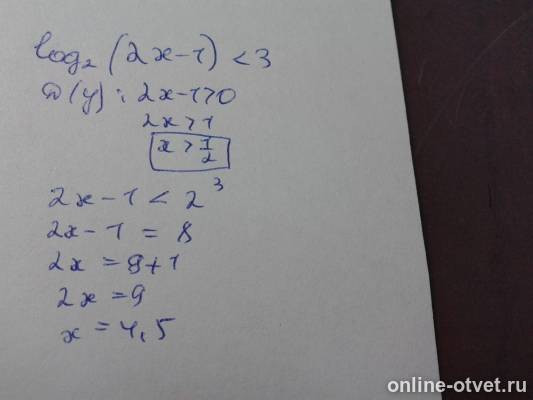 log₂ (2x-1) < 3
D(y): 2x-1>0
2x>1
x > 1/2
2x-1 < 2³
2x-1 = 8
2x = 8+1
2x = 9
x = 4,5
online-otvet.ru